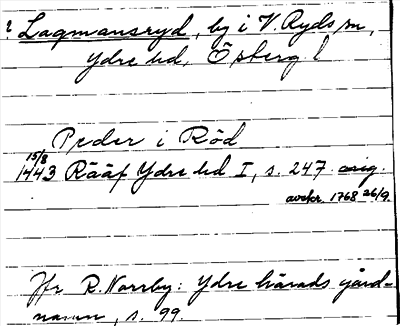 ? Lagmansryd, by i V. Ryds sn,
Ydre hd, Östergl
Peder i Röd
15/8
1443 Rääf Ydre hd I, s. 247 orig.
avskr. 1768 26/9
Jfr R. Norrby: Ydre härads gård-
namn, s. 99.